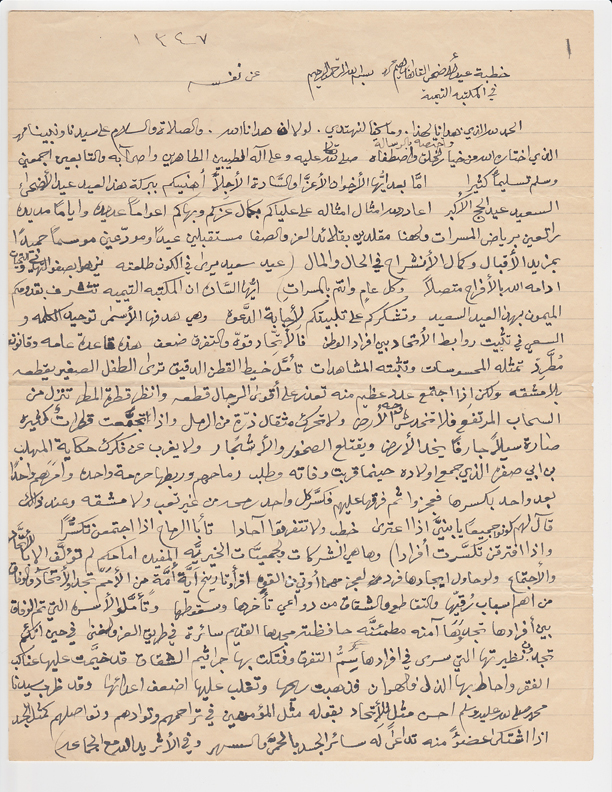 ١٣٤٧
١
خطبة عيد الأضحى القاها بسم الله الرحمن الرحيم عن نفسه
في المكتبة التيمية
الحمد لله الذي هدانا لهذا . وما كنا لنهتدي . لولا ان هدانا الله . والصلاة والسلام على سيدنا ونبينا محمد
الذي اختاره الله من خيار الخلق واصطفاه واختصه بالرسالة صلى الله عليه وعلى آله الطيبين الطاهرين واصحابه والتابعين اجمعين
وسلم تسليماً كثيراً اما بعد ايُّها الأخوان الأعزَّاء والسَّادة الأجلاَّء أهنيكم ببركة هذا العيد عيد الأضحى
السعيد عيد الحج الأكبر اعاد الله امثال امثاله على عليائكم بكمال عزكم وبهاكم اعواماً عديده واياماً مديده
راتعين برياض المسرات والهنا مقلدين بقلائد العز والصفا مستقبلين عيداً ومودعين موسماً حميداً
بمزيد الأقبال وكمال الأنشراح في الحال والمال (عيد سعيد يرى في الكون طلعته
ادامه الله بالأفراح متصلاً وكل عام وانتم بالمسرات) ايُّها السَّادة ان المكتبه التيميه تتشرف بقدومكم
الميمون بهذا العيد السعيد وتشكركم على تلبيتكم لإجابة الدَّعوة وهي هدفها الأسمى توحيد الكلمه و
السعي في تثبيت روابط الأتحاد بين افراد الوطن فالأتحاد قوة والتفرق ضعف هذه قاعدة عامه وقانون
مطَّرد تمثله المحسوسات وتثبته المشاهدات تأمَّل خيط القطن الدقيق ترى الطفل الصغير يقطعه
بلا مشقه ولكن إذا اجتمع عدد عظيم منه تعذر على أقوى الرجال قطعه وانظر قطرة المطر تنزل من
السحاب المرتفع فلا تخدش وجه الأرض ولا تحرك مثقال ذرَّة من الرمل واذا اجتمعت قطرات كثيره
صارة سيلاً جارفاً يخد الأرض ويقتلع الصخور والأشجار ولا يغرب عن فكرك حكاية المهلب
بن ابي صفره الذي جمع اولاده حينما قربت وفاته وطلب رماحهم وربطها حزمة واحده وأمرهم واحداً
بعد واحد بكسرها فعجزوا ثم فرقها عليهم فكسَّر كل واحد رمحه من غير تعب ولا مشقه وعند ذلك
قال لهم كونوا جميعاً يا بنيَّ اذا اعترى خطب ولا تتفرقوا آحادا تأبا الرماح اذا اجتمعن تكسُّرا
واذا افترقن تكسَّرت أفرادا) وها هي الشركات وجمعيَّات الخيريَّه المفيده امامكم لم تؤلَّف إلا
والأجتماع ولو حاول ايجادها فرد منهم لعجز مهما أوتي من القوه اقرأ تاريخ أيَّة أُمَّة من الأمم تجد الأتحاد
من اهم اسباب رُقيِّها والتقاطع والشقاق من دواعي تأخرها وسقوطها وتأمَّل الأسرة التي تم الوفاق
بين أفرادها تجدها آمنه مطمئنَّه حافظة مجدها القديم سائرة في طريق العز والغنى في حين انكم
تجدون نظيرتها التي سرى في افرادها سُمُّ التفرق وفتكت بها جراثيم الشقاق قد خيَّمت عليها عناكب
الفقر واحاط بها الذل والهوان فذهبت ريحها وتغلب عليها اضعف اعدائها وقد ضرب سيدنا
محمد صلى الله عليه وسلم احسن مثل للأتحاد بقوله مثل المؤمنين في تراحمهم وتوادهم وتواصلهم كمثل الجسد
اذا اشتكى اعضوٌ منه تداعى له سائر الجسد بالحمَّى والسهر وفي الأثر يد الله مع الجماعه)